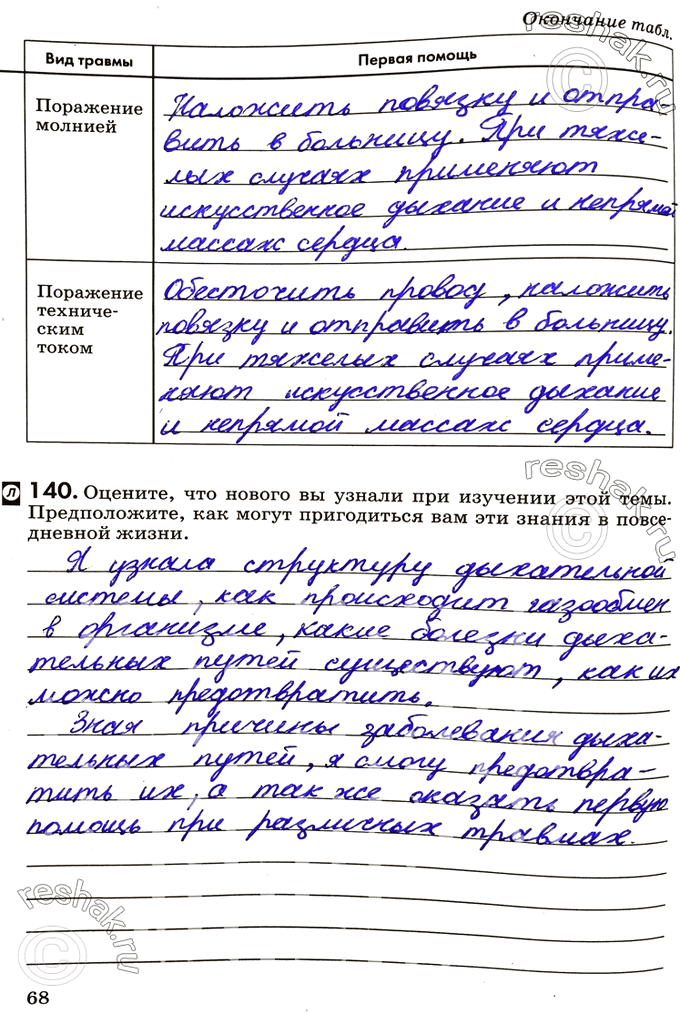 Окончание табл.
Вид травмы
Первая помощь
Поражение
молнией
Наложить повязку и отпра-
вить в больницу. При тяже-
лых случаях применяют
искусственное дыхание и непрямой
массаж сердца.
Поражение
техниче-
ским
током
Обесточить провод, наложить
повязку и отправить в больницу.
При тяжелых случаях приме-
няют искусственное дыхание
и непрямой массаж сердца.
Л 140. Оцените, что нового вы узнали при изучении этой темы.
Предположите, как могут пригодиться вам эти знания в повсе-
дневной жизни.
Я узнала структуру дыхательной
системы, как происходит газообмен
в организме, какие болезни дыха-
тельных путей существуют, как их
можно предотвратить.
Зная причины заболевания дыха-
тельных путей, я смогу предотвра-
тить их, а так же оказать первую
помощь при различных травмах.
68
reshak.ru
reshak.ru
reshak.ru